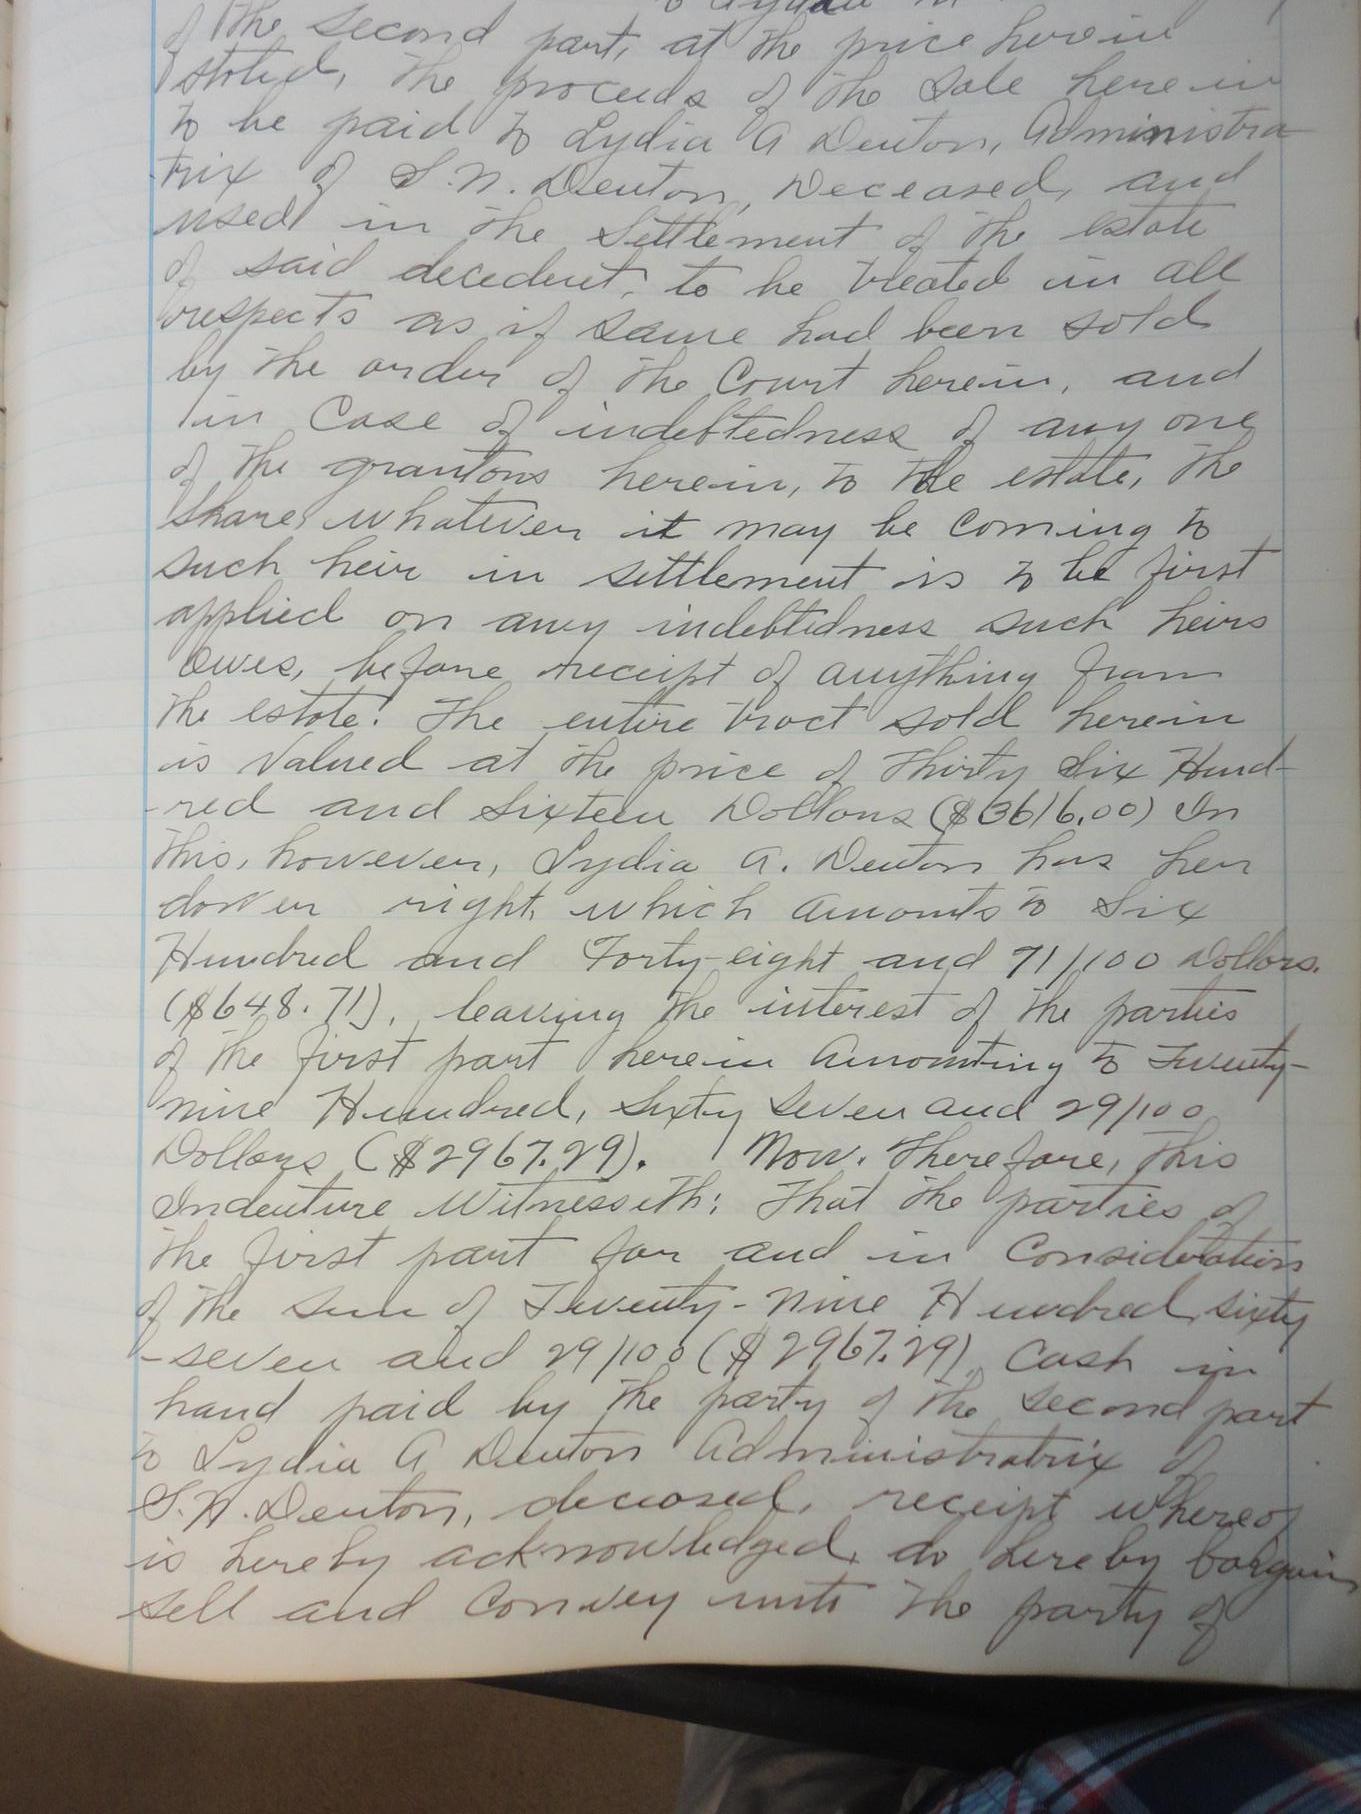 of the second part, at the price herein
stated, the proceeds of the sale herein
to be paid to Lydia A Denton, Administra-
trix of S.N. Denton, Deceased, and
used in the settlement of the estate
of said decedent, to be treated in all
respects as if same had been sold
by the order of the Court herein, and
in Case of indebtedness of any one
of the grantors herein, to the estate, the
share, whatever it may be coming to
such heir in settlement is to be first
applied on any indebtedness such heirs
owes, before receipt of anything from
the estate. The entire tract sold herein
is valued at the price of Thirty Six Hund-
-red and Sixteen Dollars ($3616.00) In
this, however, Lydia A. Denton has her
dower right, which amounts to Six
Hundred and Forty-eight and 71/100 Dollars.
($648.71), leaving the interest of the parties
of the first part herein amounting to Twenty-
nine Hundred, sixty seven and 29/100
Dollars ($2967.29). Now. Therefore, This
Indenture Witnesseth: That the parties of
the first part for and in Consideration
of the sum of Twenty-Nine Hundred, sixty
-seven and 29/100 ($2967.29), Cash in
hand paid by the party of the second part
to Lydia A Denton Administratrix of
S.N. Denton, deceased, receipt whereof
is hereby acknowledged, do hereby bargain
sell and convey unto the party of